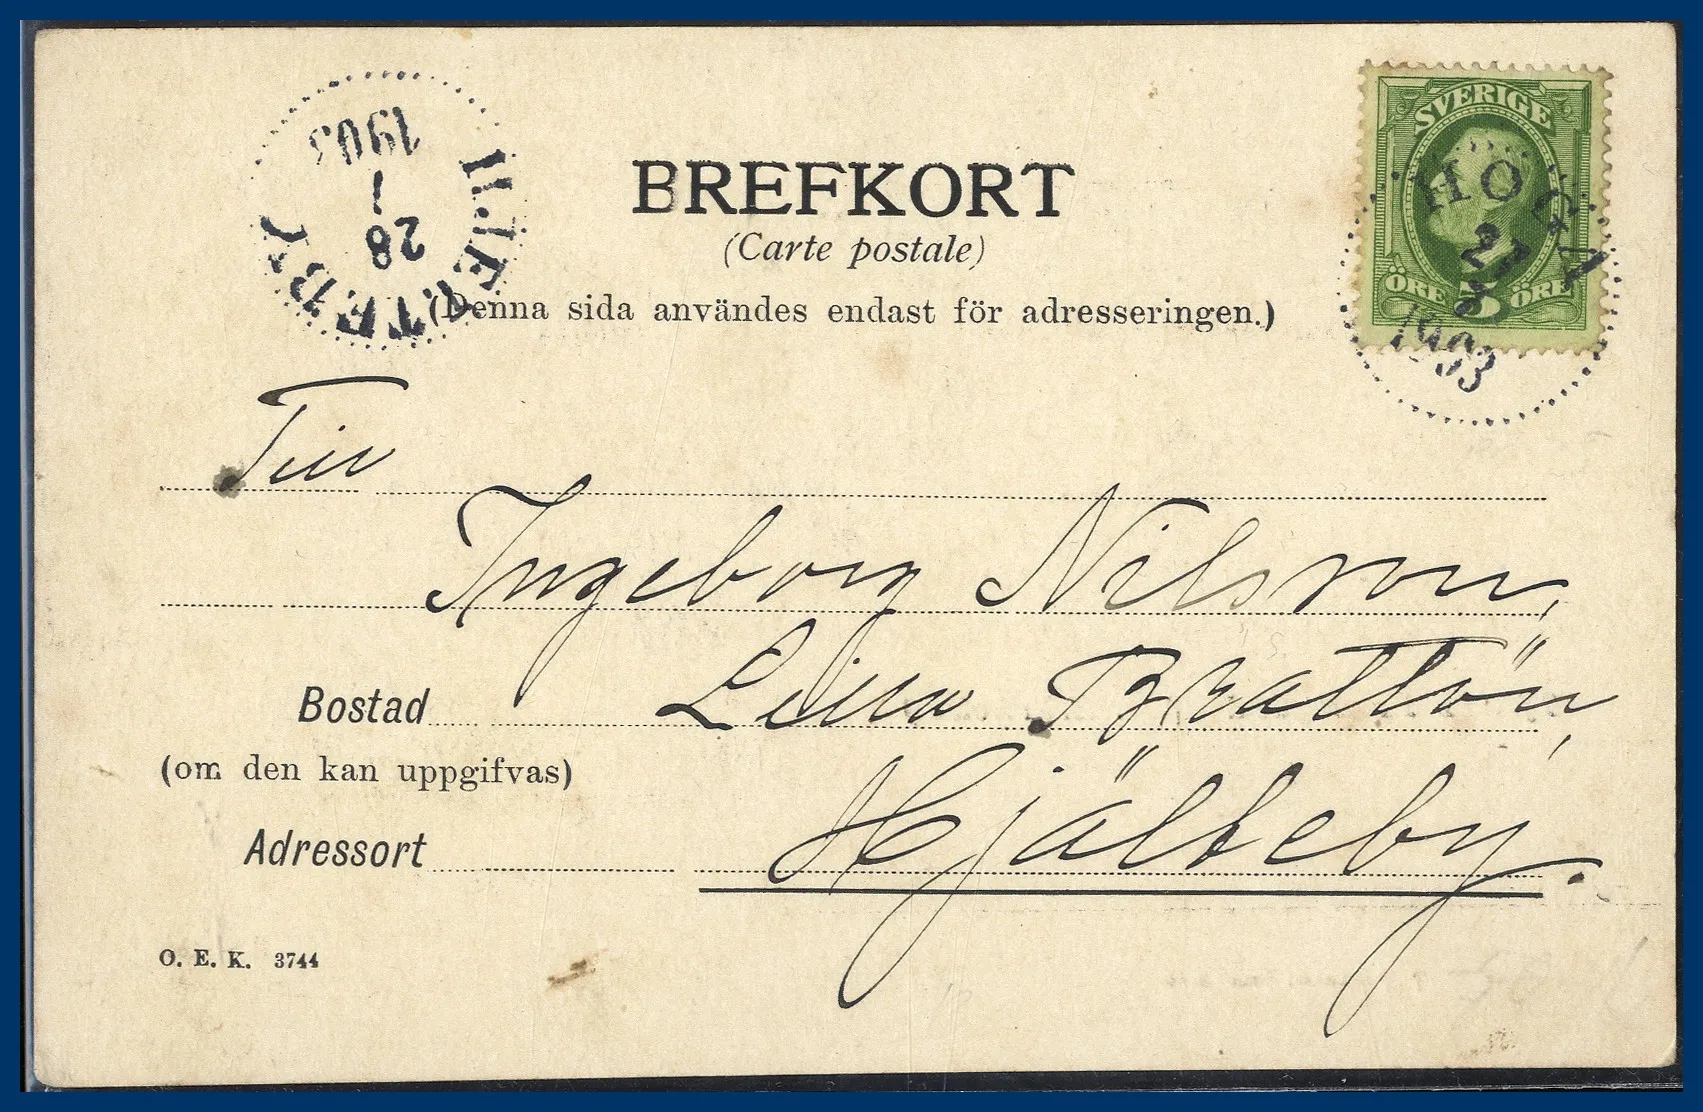 BREFKORT
(Carte postale)
(Denna sida användes endast för adresseringen.)
SVERIGE
ÖRE 5 ÖRE
HÖGA
27
1903
HJELTEBY
28
1
1903
Till
Ingeborg Nilsson,
Lilla Brattön,
Bostad
(om den kan uppgifvas)
Hjälteby.
Adressort
O. E. K. 3744